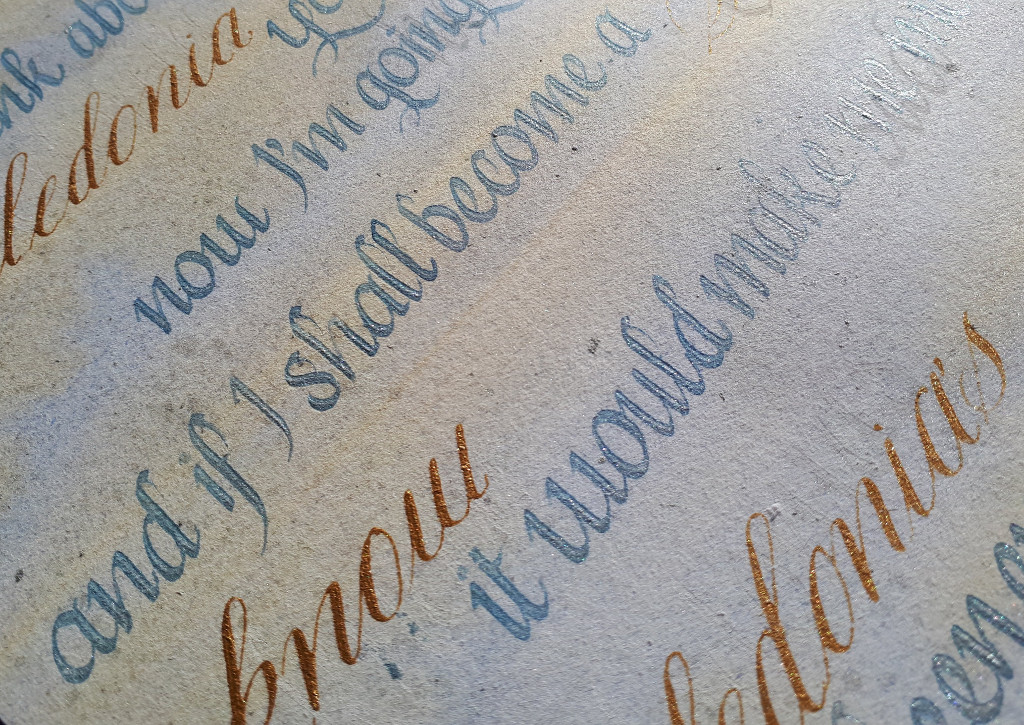 nk abo
ledonia yo
now I'm going
and if I shall become a
know it would make me
ledonia's